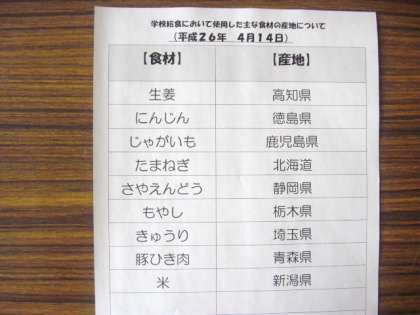 学校給食において使用した主な食材の産地について
（平成２６年　４月１４日）
【食材】　【産地】
生姜　高知県
にんじん　徳島県
じゃがいも　鹿児島県
たまねぎ　北海道
さやえんどう　静岡県
もやし　栃木県
きゅうり　埼玉県
豚ひき肉　青森県
米　新潟県